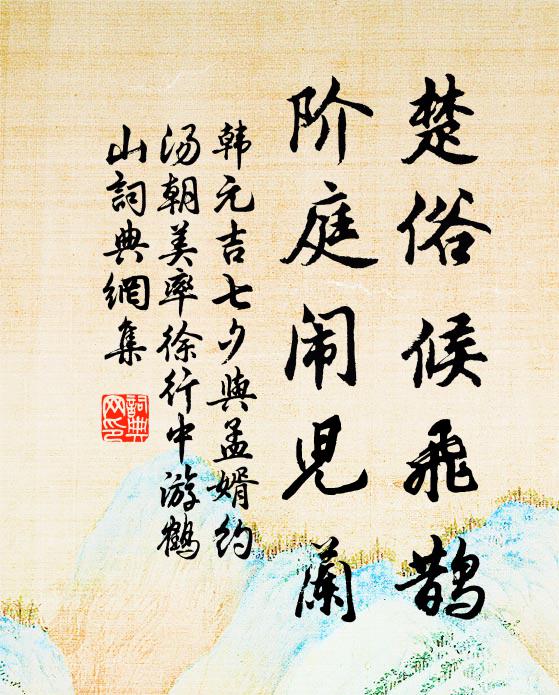 楚俗候飛鹊
阶庭闹児蘭
韩元吉七夕與孟婿约
汤朝美率徐行中游鶴
山詞典網集
詞典
网印